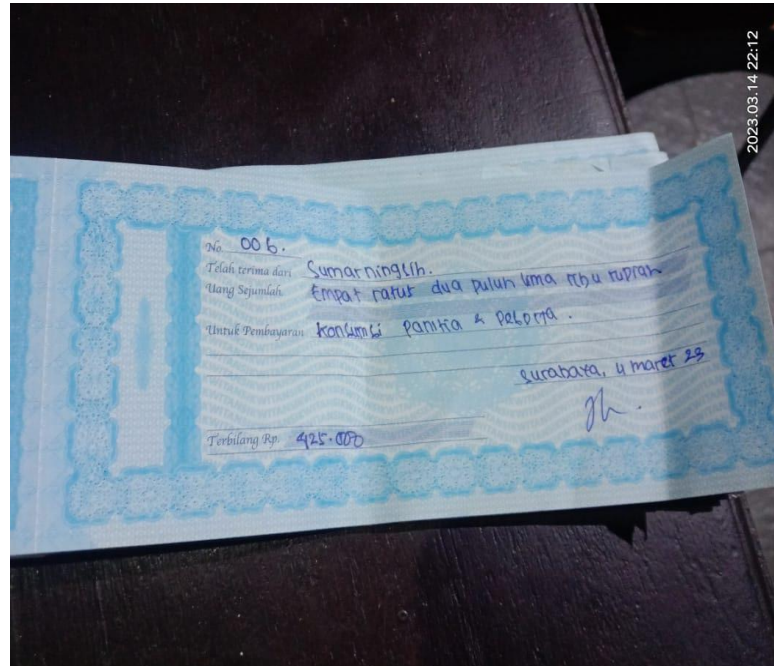 2023.03.14 22:12
No. 006.
Telah terima dari Sumarningsih.
Uang Sejumlah Empat ratus dua puluh lima ribu rupiah
Untuk Pembayaran Konsumsi panitia & pekerja.
Surabaya, 4 maret 23
Terbilang Rp. 425.000